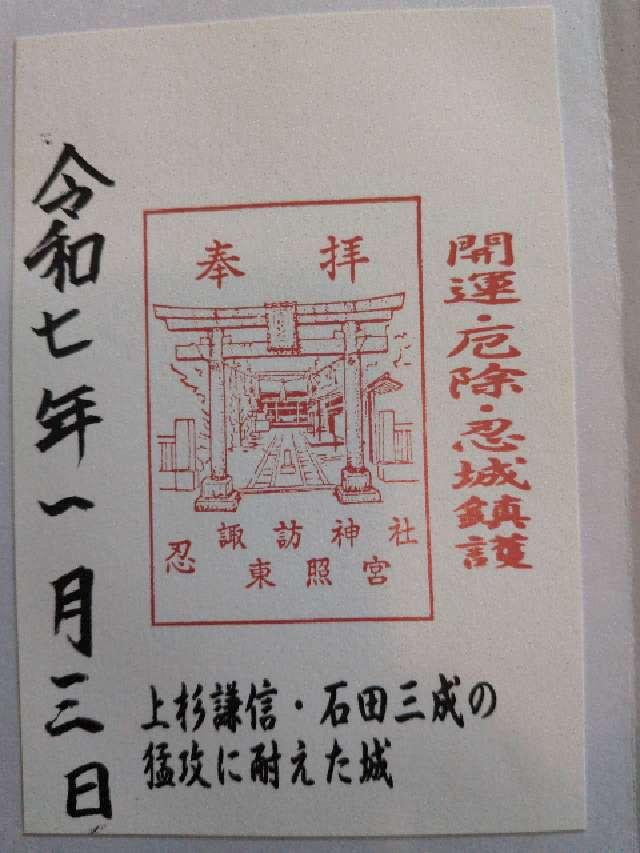 開運・厄除・忍城鎮護
奉拝
忍
諏訪神社
東照宮
上杉謙信・石田三成の
猛攻に耐えた城
令和七年一月三日